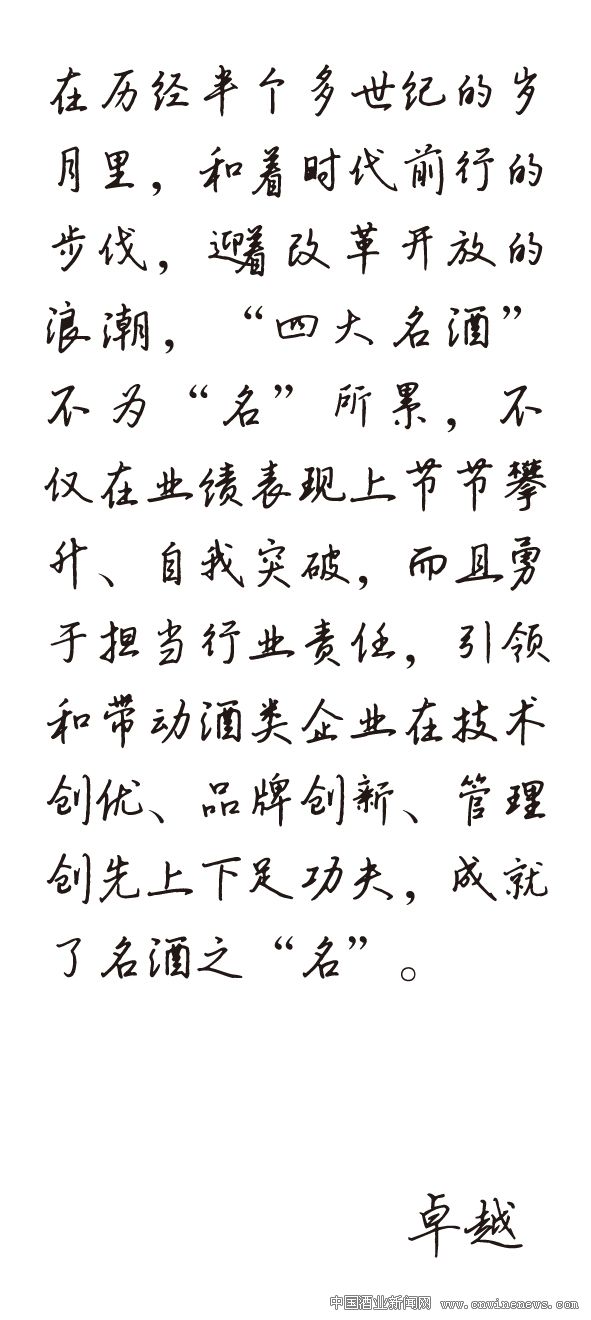 在历经半个多世纪的岁
月里，和着时代前行的
步伐，迎着改革开放的
浪潮，“四大名酒”
不为“名”所累，不
仅在业绩表现上节节攀
升、自我突破，而且勇
于担当行业责任，引领
和带动酒类企业在技术
创优、品牌创新、管理
创先上下足功夫，成就
了名酒之“名”。
卓越
中国酒业新闻网 www.cnwinenews.com